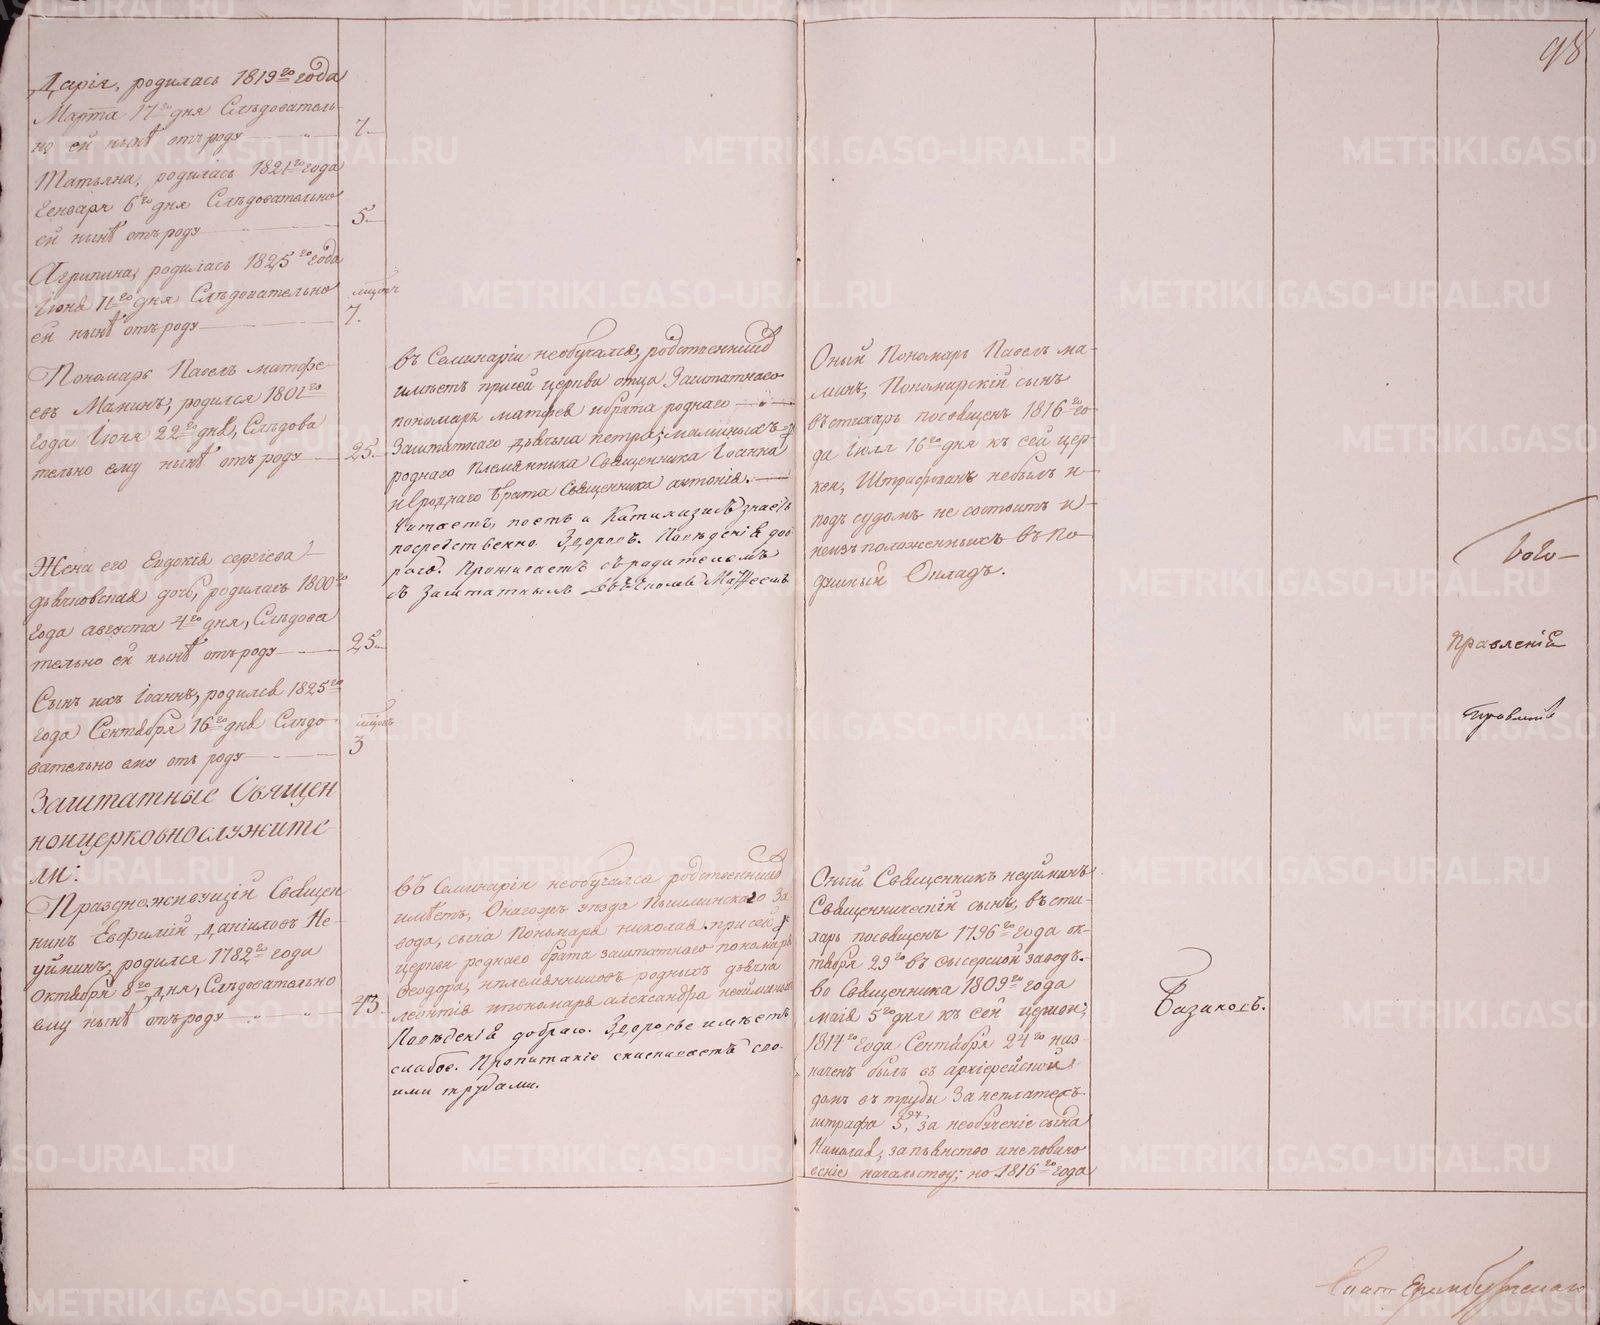 98
Дарія, родилась 1819го года
Марта 17го дня Слѣдователь-
но ей нынѣ отъ роду
7.
Татьяна, родилась 1821го года
Генваря 6го дня Слѣдовательно
ей нынѣ отъ роду
5.
Агрипина, родилась 1825го года
Іюня 11го дня Слѣдовательно
ей нынѣ отъ роду
7.
Пономарь Павелъ матѳе-
евъ Маминъ, родился 1801го
года Іюня 22го дня, Слѣдова
тельно ему нынѣ отъ роду
25.
Жена его Евдокія сергіева
дьячковская дочь, родилась 1800го
года августа 4го дня, Слѣдова
тельно ей нынѣ отъ роду
25.
Сынъ ихъ Іоаннъ, родился 1825го
года Сентября 16го дня Слѣдо-
вательно ему отъ роду
3
Заштатные Священ
ноицерковнослужите
ли:
Празноживущій Священ
никъ Евфимій Даніиловъ Не-
уйминъ, родился 1782го года
Октября 8го дня, Слѣдовательно
ему нынѣ отъ роду
43.
въ Семинаріи необучался, родственников
имѣетъ присей церкви отца Заштатнаго
пономаря матѳея ибрата роднаго
Заштатнаго дьячка петра, маминыхъ
роднаго Племянника Священника Іоанна
и роднаго брата Священника антонія.
Читаетъ, поетъ и Катихизисъ знаетъ
посредственно. Здоровъ. Поведенія доб
раго. Проживаетъ съ родителемъ
съ Заштатнымъ
въ Семинаріи необучался родственников
имѣетъ, Онагожъ уезда Пышминскаго За
вода, сына Пономаря николая, при сей
церкви роднаго брата заштатнаго пономаря
Ѳеодора, иплемянников родныхъ дьячка
леонтія ипономаря александра неуйминыхъ
Поведенія добраго. Здоровье имѣетъ
слабое. Пропитаніе снискиваетъ сво-
ими трудами.
Оный Пономарь Павелъ ма-
минъ, Пономарскій сынъ
въ стихарь посвященъ 1816го го-
да Іюля 16го дня къ сей цер-
кви, Штрафованъ небылъ и
подъ судомъ не состоитъ и
неизъ положенныхъ въ По-
душный Окладъ.
Оный Священникъ неуйминъ
Священническій сынъ, въ сти-
харь посвященъ 1796го года ок-
тября 29го въ сысерской заводъ.
во Священника 1809го года
маія 5го дня къ сей церкви;
1814го года Сентября 24го наз-
наченъ былъ въ архіерейской
домъ въ труды За неплатежъ
штрафа 5, за необученіе сына
Николая, за пьянство и неповино
веніе начальству; но 1816го года
Базаковъ.
Бого-
Правленія